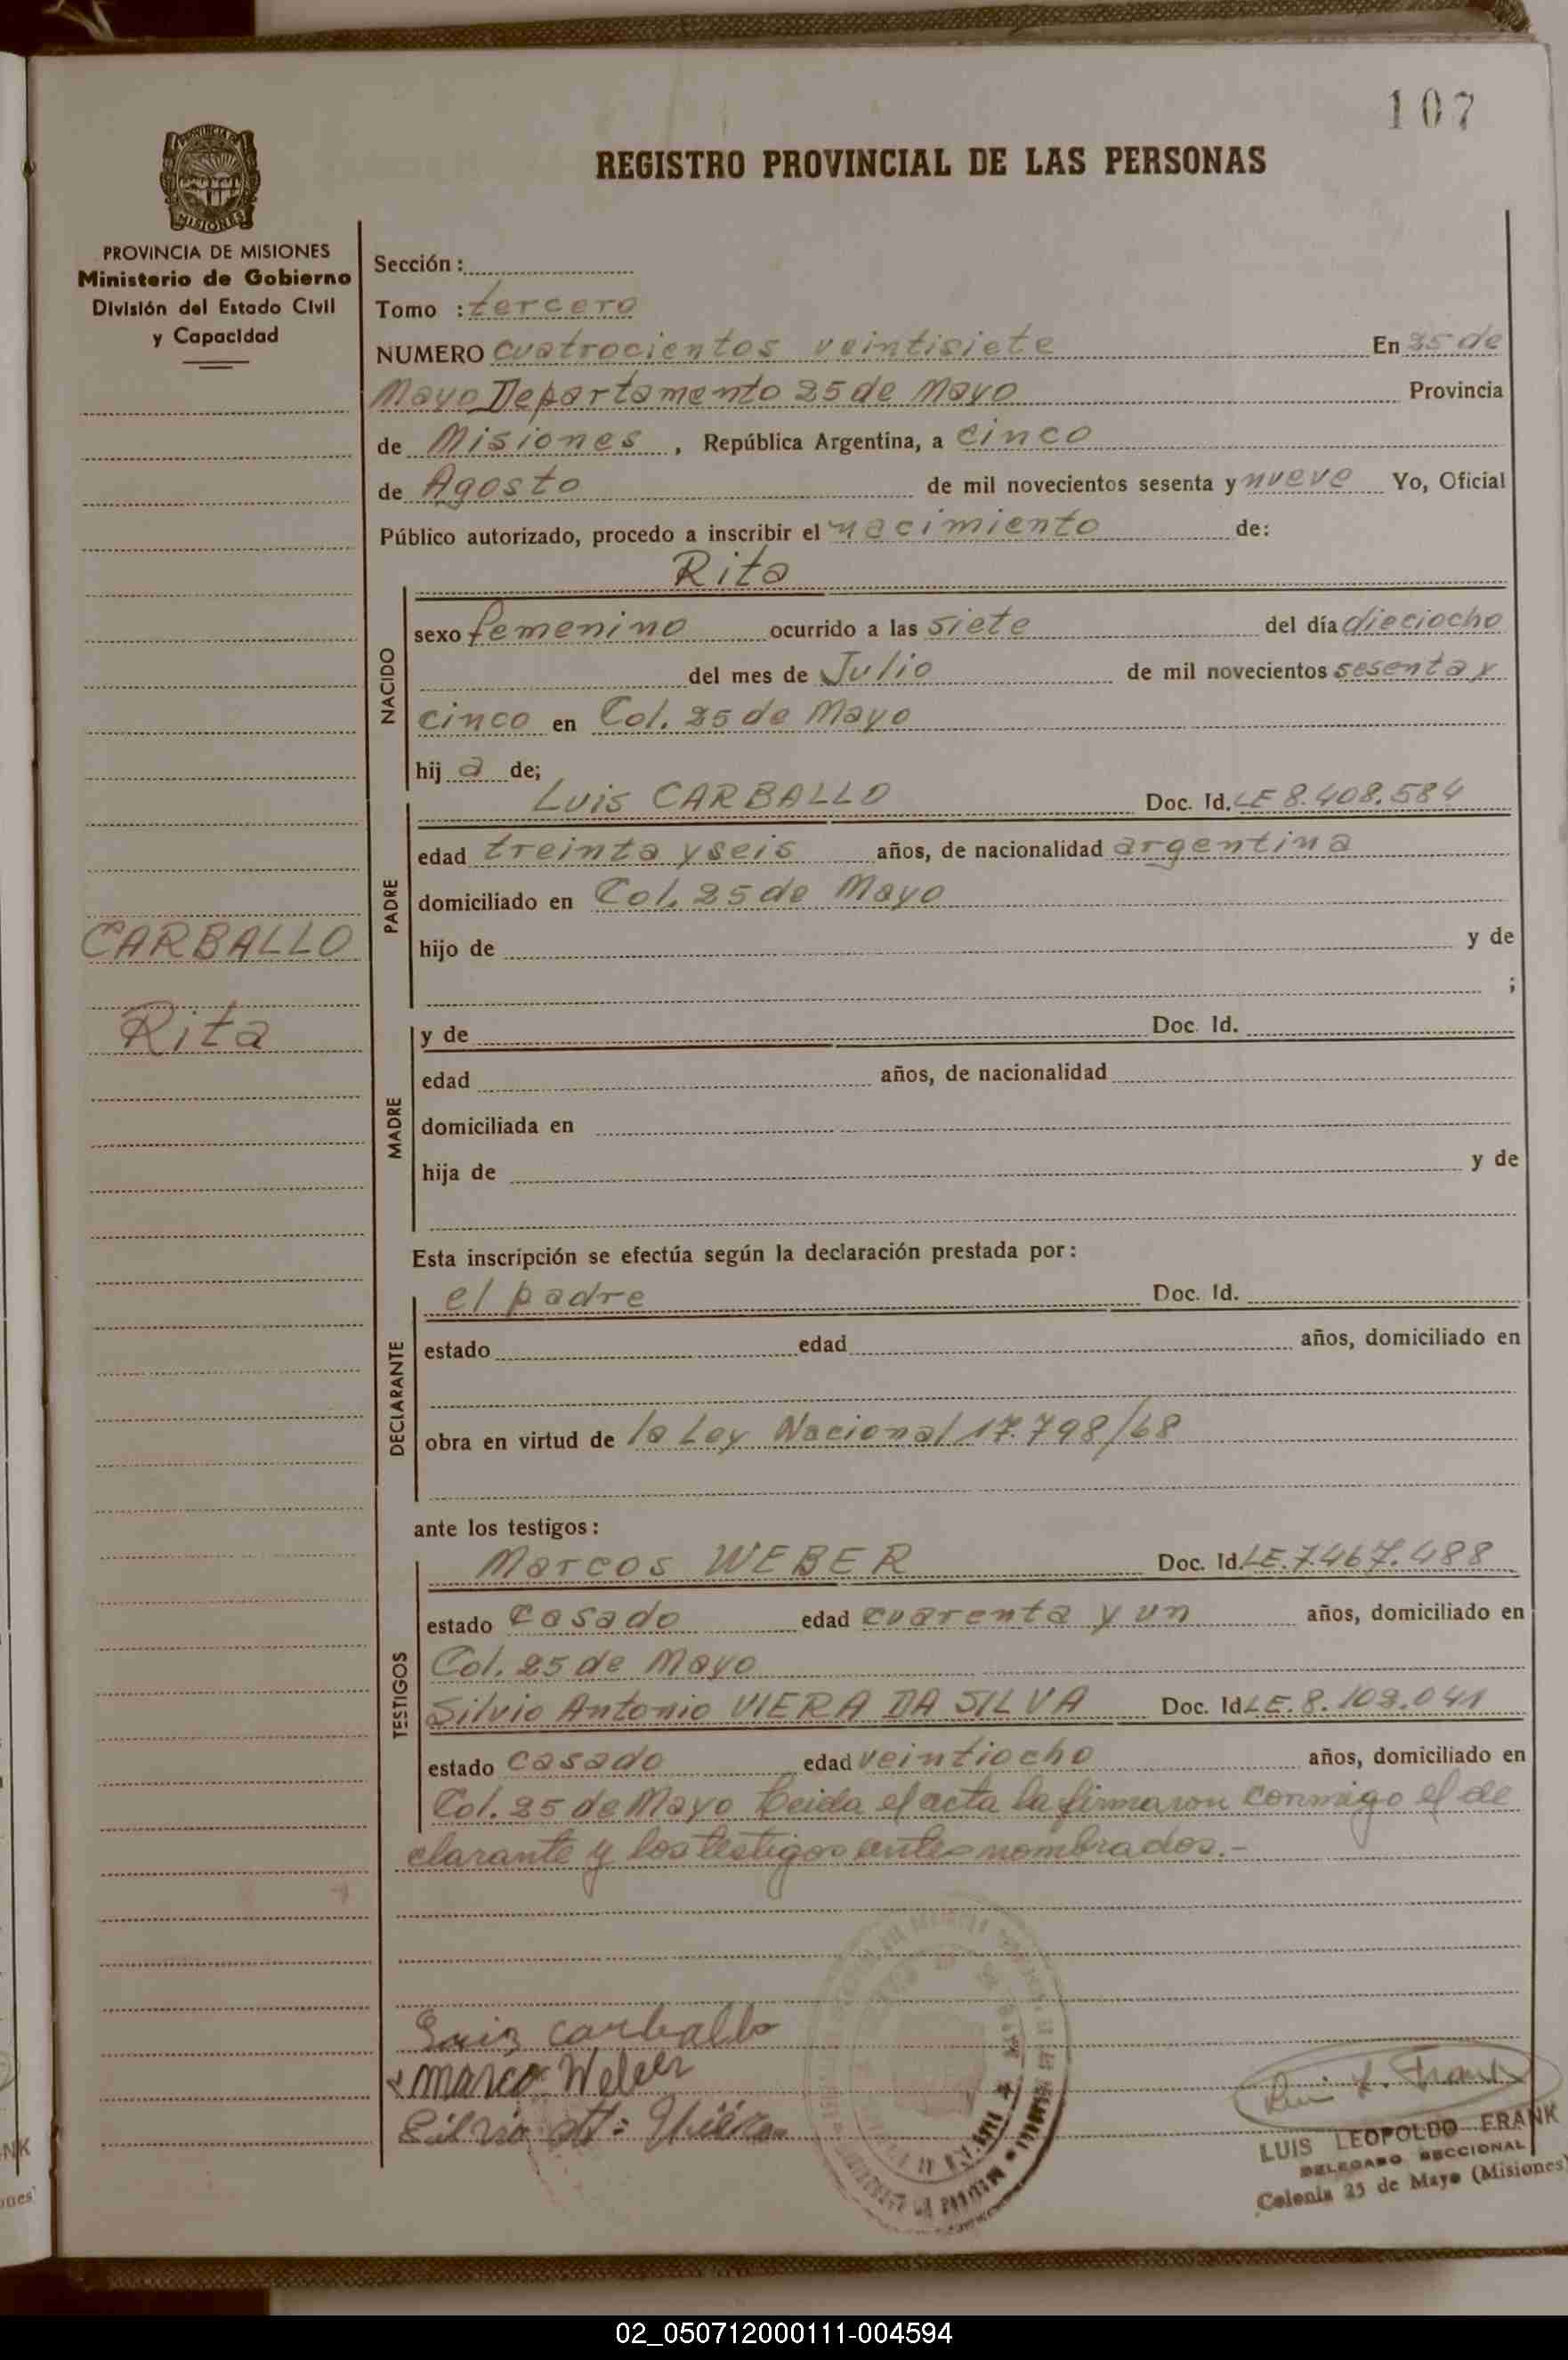 107
REGISTRO PROVINCIAL DE LAS PERSONAS
PROVINCIA DE MISIONES
Ministerio de Gobierno
División del Estado Civil
y Capacidad
CARBALLO
Rita
Sección :
Tomo : tercero
NUMERO cuatrocientos veintisiete En 25 de
Mayo Departamento 25 de Mayo Provincia
de Misiones , República Argentina, a cinco
de Agosto de mil novecientos sesenta y nueve Yo, Oficial
Público autorizado, procedo a inscribir el nacimiento de:
Rita
NACIDO
sexo femenino ocurrido a las siete del día dieciocho
del mes de Julio de mil novecientos sesenta y
cinco en Col. 25 de Mayo
hij a de;
Luis CARBALLO Doc. Id. LE 8.408.584
PADRE
edad treinta y seis años, de nacionalidad argentina
domiciliado en Col. 25 de Mayo
hijo de y de
;
MADRE
y de Doc. Id.
edad años, de nacionalidad
domiciliada en
hija de y de
Esta inscripción se efectúa según la declaración prestada por:
el padre Doc. Id.
DECLARANTE
estado edad años, domiciliado en
obra en virtud de la Ley Nacional 17.798/68
ante los testigos:
Marcos WEBER Doc. Id. LE.7.467.488
TESTIGOS
estado casado edad cuarenta y un años, domiciliado en
Col. 25 de Mayo
Silvio Antonio VIERA DA SILVA Doc. Id LE.8.109.041
estado casado edad veintiocho años, domiciliado en
Col. 25 de Mayo Leida el acta la firmaron conmigo el de
clarante y los testigos antes nombrados.-
Luiz carballo
marco Weber
LUIS LEOPOLDO FRANK
DELEGADO SECCIONAL
Colonia 25 de Mayo (Misiones)
02_050712000111-004594